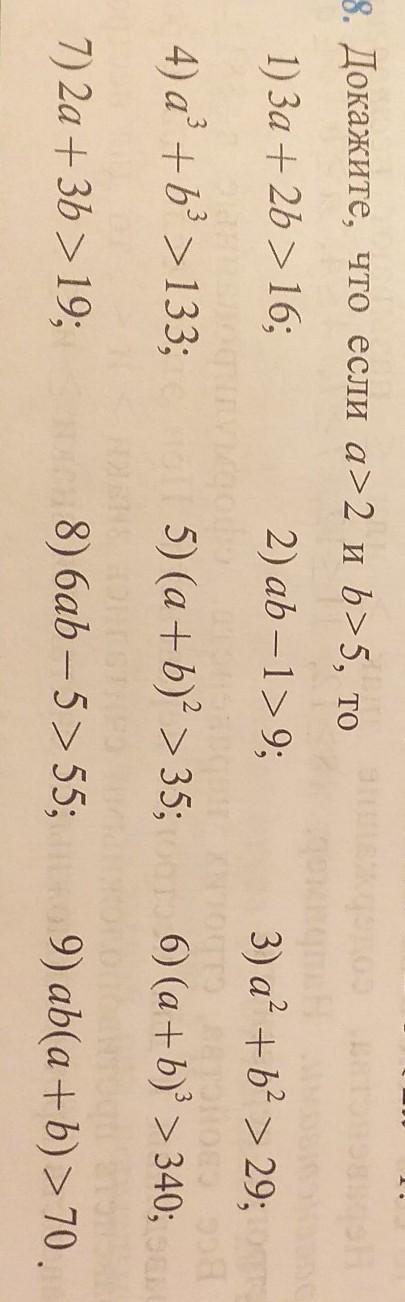 8. Докажите, что если a>2 и b>5, то
1) 3a+2b>16; 2) ab−1>9; 3) a²+b²>29;
4) a³+b³>133; 5) (a+b)²>35; 6) (a+b)³>340;
7) 2a+3b>19; 8) 6ab−5>55; 9) ab(a+b)>70.